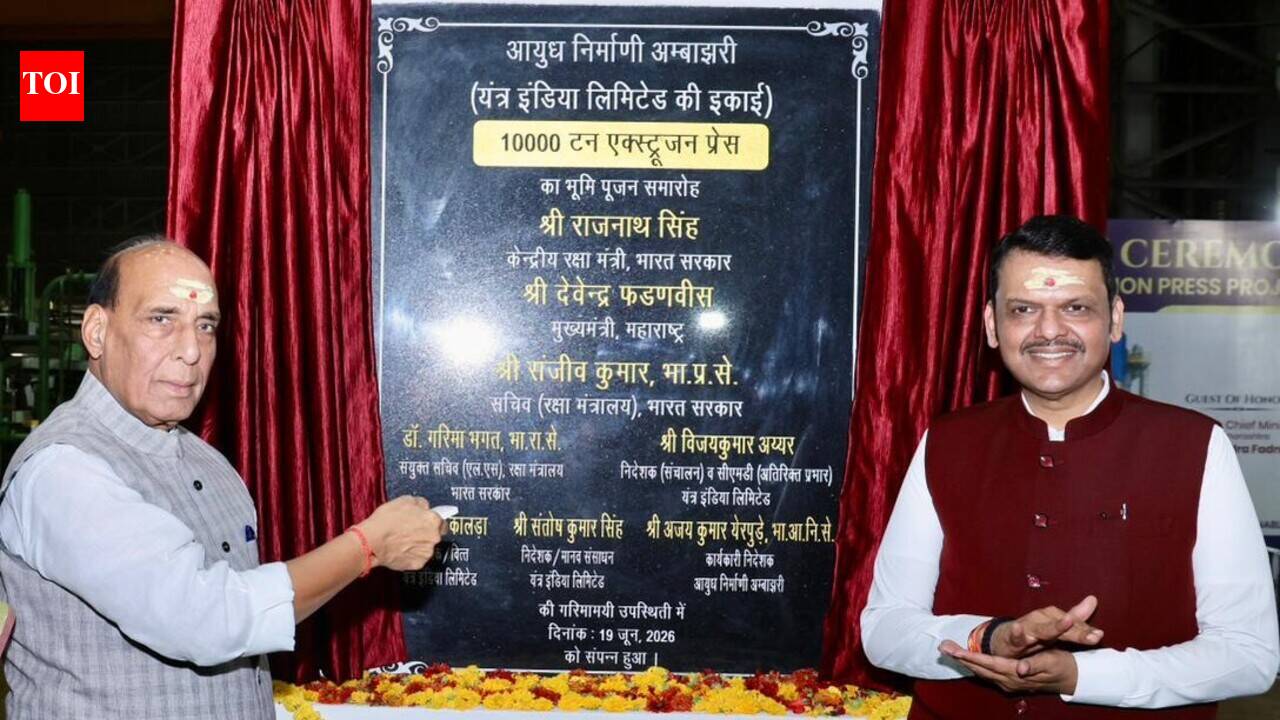 TOI
आयुध निर्माणी अम्बाझरी
(यंत्र इंडिया लिमिटेड की इकाई)
10000 टन एक्स्ट्रूजन प्रेस
का भूमि पूजन समारोह
श्री राजनाथ सिंह
केन्द्रीय रक्षा मंत्री, भारत सरकार
श्री देवेन्द्र फडणवीस
मुख्यमंत्री, महाराष्ट्र
श्री संजीव कुमार, भा.प्र.से.
सचिव (रक्षा मंत्रालय), भारत सरकार
डॉ. गरिमा भगत, भा.रा.से.
संयुक्त सचिव (एल.एस), रक्षा मंत्रालय
भारत सरकार
श्री विजयकुमार अय्यर
निर्देशक (संचालन) व सीएमडी (अतिरिक्त प्रभार)
यंत्र इंडिया लिमिटेड
कालड़ा
/ वित्त
यंत्र इंडिया लिमिटेड
श्री संतोष कुमार सिंह
निदेशक / मानव संसाधन
यंत्र इंडिया लिमिटेड
श्री अजय कुमार येरपुड़े, भा.आ.नि.से.
कार्यकारी निदेशक
आयुध निर्माणी अम्बाझरी
की गरिमामयी उपस्थिती में
दिनांक : 19 जून, 2026
को संपन्न हुआ |
CEREMO
ION PRESS PROJ
GUEST OF HONO
Chief Mini